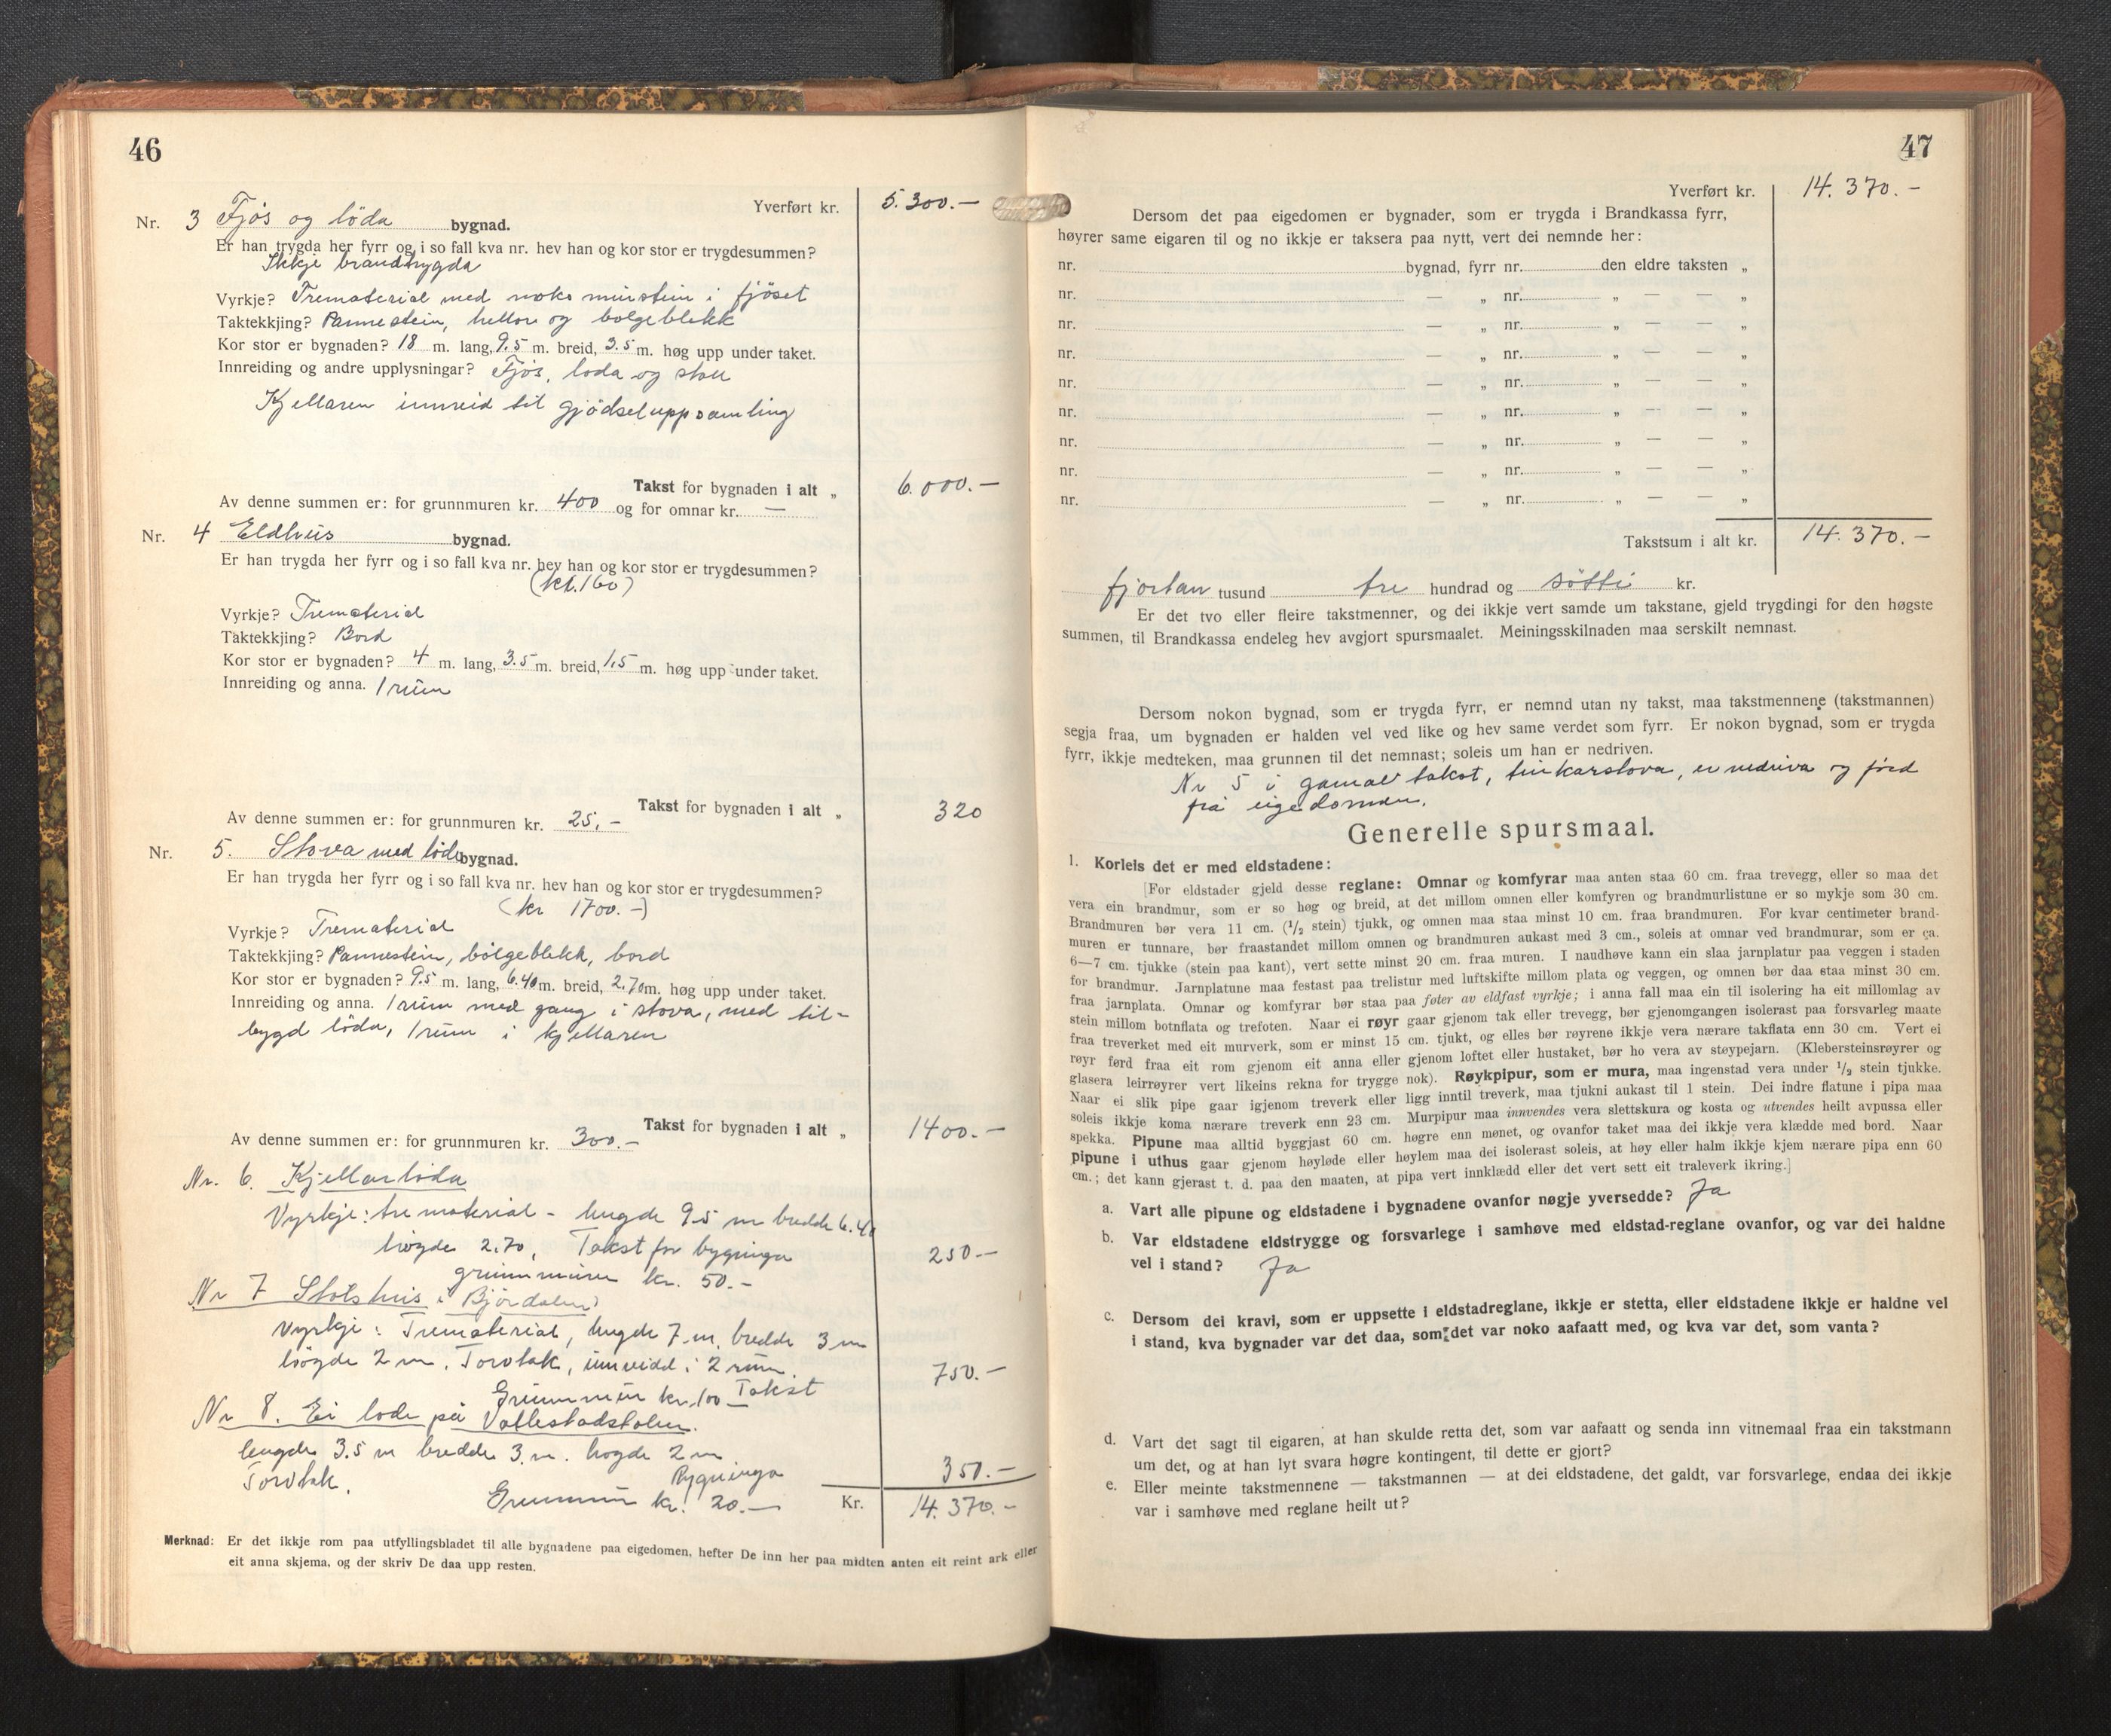 46
Yverført kr. 5.300.—
Nr. 3 Fjös og löda bygnad.
Er han trygda her fyrr og i so fall kva nr. hev han og kor stor er trygdesummen?
Ikkje brandtrygda
Vyrkje? Tremateriel med noko murstein i fjöset
Taktekkjing? Pannestein, hellor og bolgeblekk
Kor stor er bygnaden? 18 m. lang, 9.5 m. breid, 3.5 m. høg upp under taket.
Innreiding og andre upplysningar? Fjös, loda og stall
Kjellaren innreid til gjödseluppsamling
Takst for bygnaden i alt „ 6.000.—
Av denne summen er: for grunnmuren kr. 400 og for omnar kr. —
Nr. 4 Eldhus bygnad.
Er han trygda her fyrr og i so fall kva nr. hev han og kor stor er trygdesummen?
(kr. 160)
Vyrkje? Tremateriel
Taktekkjing? Bord
Kor stor er bygnaden? 4 m. lang, 3.5 m. breid, 1.5 m. høg upp under taket.
Innreiding og anna. 1 rum
Takst for bygnaden i alt „ 320
Av denne summen er: for grunnmuren kr. 25.—
Nr. 5. Stova med löda bygnad.
Er han trygda her fyrr og i so fall kva nr. hev han og kor stor er trygdesummen?
(kr 1700.—)
Vyrkje? Tremateriel
Taktekkjing? Pannestein, bölgeblekk, bord
Kor stor er bygnaden? 9.5 m. lang, 6.40 m. breid, 2.70 m. høg upp under taket.
Innreiding og anna. 1 rum med gang i stova, med til-
bygd löda, 1 rum i kjellaren
Takst for bygnaden i alt „ 1400.—
Av denne summen er: for grunnmuren kr. 300.—
Nr. 6. Kjellarlöda
Vyrkje: tremateriel - lengde 9.5 m bredde 6.40
högde 2.70, Takst for bygninga 250.—
grunnmuren kr. 50.—
Nr 7 Stölshus i Björdalen
Vyrkje: Tremateriel, lengde 7 m, bredde 3 m
högde 2 m. Torvtak, innreidd i 2 rum.
Grunnmur kr. 100 — Takst 750.—
Nr 8. Ei lode på Vallestadstolen.
lengde 3.5 m bredde 3 m. högde 2 m
Torvtak. Bygninga 350.—
Grunnmur kr. 20.— Kr. 14.370.—
Merknad: Er det ikkje rom paa utfyllingsbladet til alle bygnadene paa eigedomen, hefter De inn her paa midten anten eit reint ark eller
eit anna skjema, og der skriv De daa upp resten.
47
Yverført kr. 14.370.—
Dersom det paa eigedomen er bygnader, som er trygda i Brandkassa fyrr,
høyrer same eigaren til og no ikkje er taksera paa nytt, vert dei nemnde her:
nr. bygnad, fyrr nr. den eldre taksten „
nr. — „ nr. „ — — „
nr. — „ nr. „ — — „
nr. — „ nr. „ — — „
nr. — „ nr. „ — — „
nr. — „ nr. „ — — „
nr. — „ nr. „ — — „
nr. — „ nr. „ — — „
nr. — „ nr. „ — — „
Takstsum i alt kr. 14.370.—
fjortan tusund tre hundrad og sötti kr.
Er det tvo eller fleire takstmenner, og dei ikkje vert samde um takstane, gjeld trygdingi for den høgste
summen, til Brandkassa endeleg hev avgjort spursmaalet. Meiningsskilnaden maa serskilt nemnast.
Dersom nokon bygnad, som er trygda fyrr, er nemnd utan ny takst, maa takstmennene (takstmannen)
segja fraa, um bygnaden er halden vel ved like og hev same verdet som fyrr. Er nokon bygnad, som er trygda
fyrr, ikkje medteken, maa grunnen til det nemnast; soleis um han er nedriven.
Nr 5 i gamal takst, er nedriva og förd
frå eigedomen.
Generelle spursmaal.
1. Korleis det er med eldstadene:
[For eldstader gjeld desse reglane: Omnar og komfyrar maa anten staa 60 cm. fraa trevegg, eller so maa det
vera ein brandmur, som er so høg og breid, at det millom omnen eller komfyren og brandmurlistune er so mykje som 30 cm.
Brandmuren bør vera 11 cm. (1/2 stein) tjukk, og omnen maa staa minst 10 cm. fraa brandmuren. For kvar centimeter brand-
muren er tunnare, bør fraastandet millom omnen og brandmuren aukast med 3 cm., soleis at omnar ved brandmurar, som er ca.
6—7 cm. tjukke (stein paa kant), vert sette minst 20 cm. fraa muren. I naudhøve kann ein slaa jarnplatur paa veggen i staden
for brandmur. Jarnplatune maa festast paa trelistur med luftskifte millom plata og veggen, og omnen bør daa staa minst 30 cm.
fraa jarnplata. Omnar og komfyrar bør staa paa føter av eldfast vyrkje; i anna fall maa ein til isolering ha eit millomlag av
stein millom botnflata og trefoten. Naar ei røyr gaar gjenom tak eller trevegg, bør gjenomgangen isolerast paa forsvarleg maate
fraa treverket med eit murverk, som er minst 15 cm. tjukt, og elles bør røyrene ikkje vera nærare takflata enn 30 cm. Vert ei
røyr førd fraa eit rom gjenom eit anna eller gjenom loftet eller hustaket, bør ho vera av støypejarn. (Klebersteinsrøyrer og
glasera leirrøyrer vert likeins rekna for trygge nok). Røykpipur, som er mura, maa ingenstad vera under 1/2 stein tjukke.
Naar ei slik pipe gaar igjenom treverk eller ligg inntil treverk, maa tjukni aukast til 1 stein. Dei indre flatune i pipa maa
soleis ikkje koma nærare treverk enn 23 cm. Murpipur maa innvendes vera slettskura og kosta og utvendes heilt avpussa eller
spekka. Pipune maa alltid byggjast 60 cm. høgre enn mønet, og ovanfor taket maa dei ikkje vera klædde med bord. Naar
pipune i uthus gaar gjenom høyløde eller høylem maa dei isolerast soleis, at høy eller halm ikkje kjem nærare pipa enn 60
cm.; det kann gjerast t. d. paa den maaten, at pipa vert innklædd eller det vert sett eit traleverk ikring.]
a. Vart alle pipune og eldstadene i bygnadene ovanfor nøgje yversedde? Ja
b. Var eldstadene eldstrygge og forsvarlege i samhøve med eldstad-reglane ovanfor, og var dei haldne
vel i stand? Ja
c. Dersom dei kravi, som er uppsette i eldstadreglane, ikkje er stetta, eller eldstadene ikkje er haldne vel
i stand, kva bygnader var det daa, som det var noko aafaatt med, og kva var det, som vanta?
d. Vart det sagt til eigaren, at han skulde retta det, som var aafaatt og senda inn vitnemaal fraa ein takstmann
um det, og at han lyt svara høgre kontingent, til dette er gjort?
e. Eller meinte takstmennene — takstmannen — at dei eldstadene, det galdt, var forsvarlege, endaa dei ikkje
var i samhøve med reglane heilt ut?